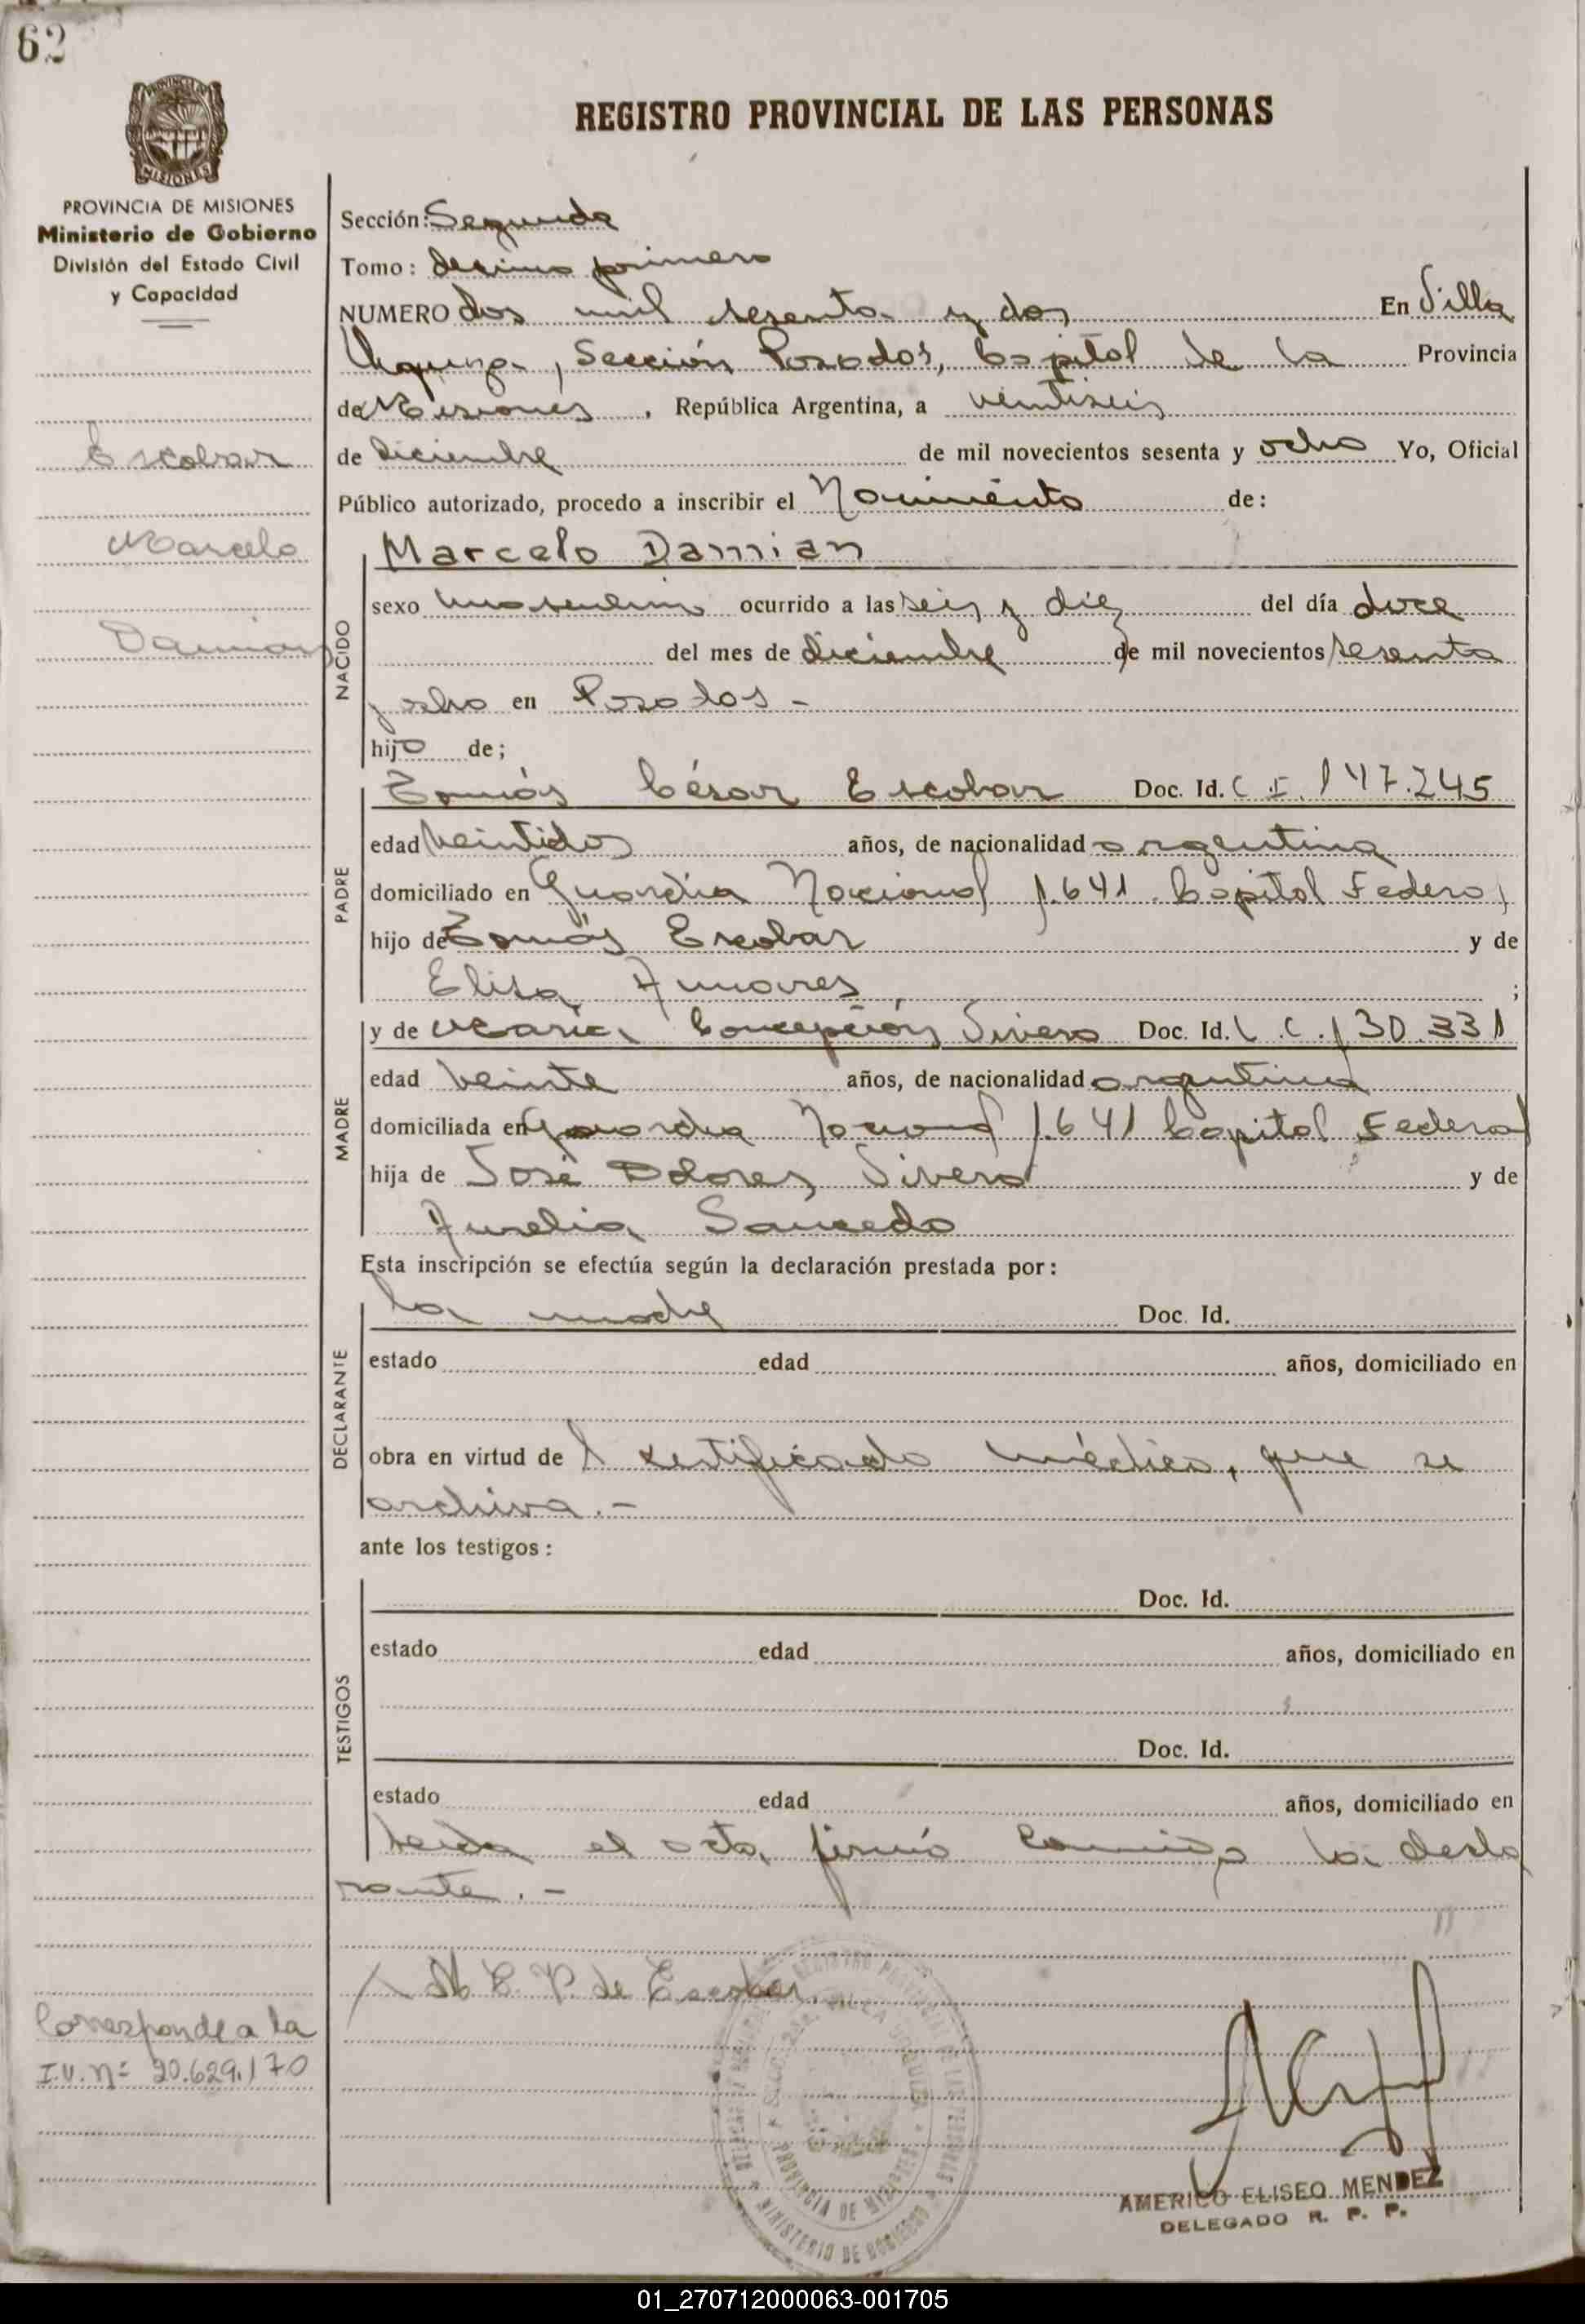 62
PROVINCIA DE MISIONES
Ministerio de Gobierno
División del Estado Civil
y Capacidad
REGISTRO PROVINCIAL DE LAS PERSONAS
Sección: Segunda
Tomo: decimo primero
NUMERO dos mil sesenta y dos En Villa
Urquiza, Sección Posadas, Capital de la Provincia
de Misiones, República Argentina, a veintiseis
de diciembre de mil novecientos sesenta y ocho Yo, Oficial
Público autorizado, procedo a inscribir el Nacimiento de:
Escobar
Marcelo
Damian
NACIDO
Marcelo Damian
sexo masculino ocurrido a las seis y diez del día doce
del mes de diciembre de mil novecientos sesenta
y ocho en Posadas -
hijo de;
PADRE
Tomás César Escobar Doc. Id. C.I. 147.245
edad veintidos años, de nacionalidad argentina
domiciliado en Guardia Nacional 1.641 Capital Federal
hijo de Tomás Escobar y de
Elisa ;
MADRE
y de Maria Concepción Vivero Doc. Id. L.C. 130.331
edad veinte años, de nacionalidad argentina
domiciliada en Guardia Nacional 1.641 Capital Federal
hija de José Dolores Vivero y de
Aurelia Saucedo
Esta inscripción se efectúa según la declaración prestada por:
DECLARANTE
la madre Doc. Id.
estado edad años, domiciliado en
obra en virtud del certificado médico, que se
archiva.-
ante los testigos:
TESTIGOS
Doc. Id.
estado edad años, domiciliado en
Doc. Id.
estado edad años, domiciliado en
leida el acta, firmó conmigo la decla
rante.-
M C. V. de Escobar
Corresponde a la
I.U. Nº 20.629.170
REGISTRO PROVINCIAL DE LAS PERSONAS
VILLA URQUIZA
PROVINCIA DE MISIONES
MINISTERIO DE GOBIERNO
AMERICO ELISEO MENDEZ
DELEGADO R. P. P.
01_270712000063-001705